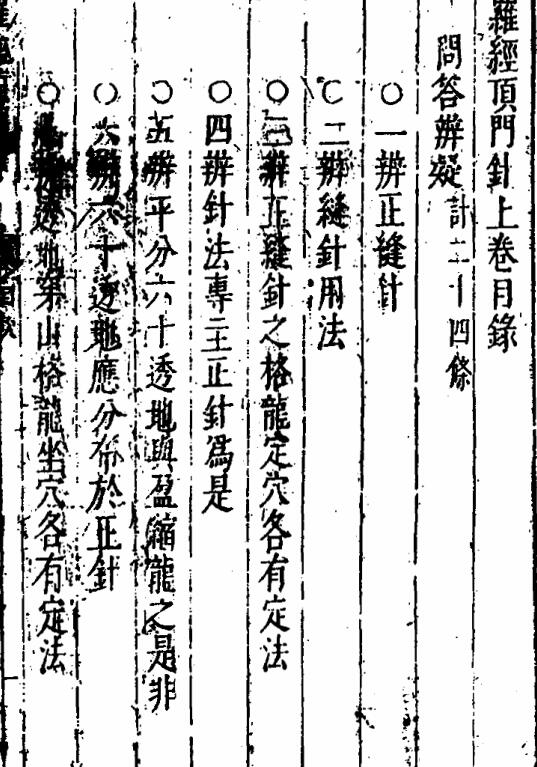 羅經頂門針上卷目錄
問答辨疑計二十四條
〇一辨正縫針
〇二辨縫針用法
〇三辨正縫針之格龍定穴各有定法
〇四辨針法專主正針爲是
〇五辨平分六十透地與盈縮龍之是非
〇六辨六十透地應分布於正針
〇透地案山格龍坐穴各有定法